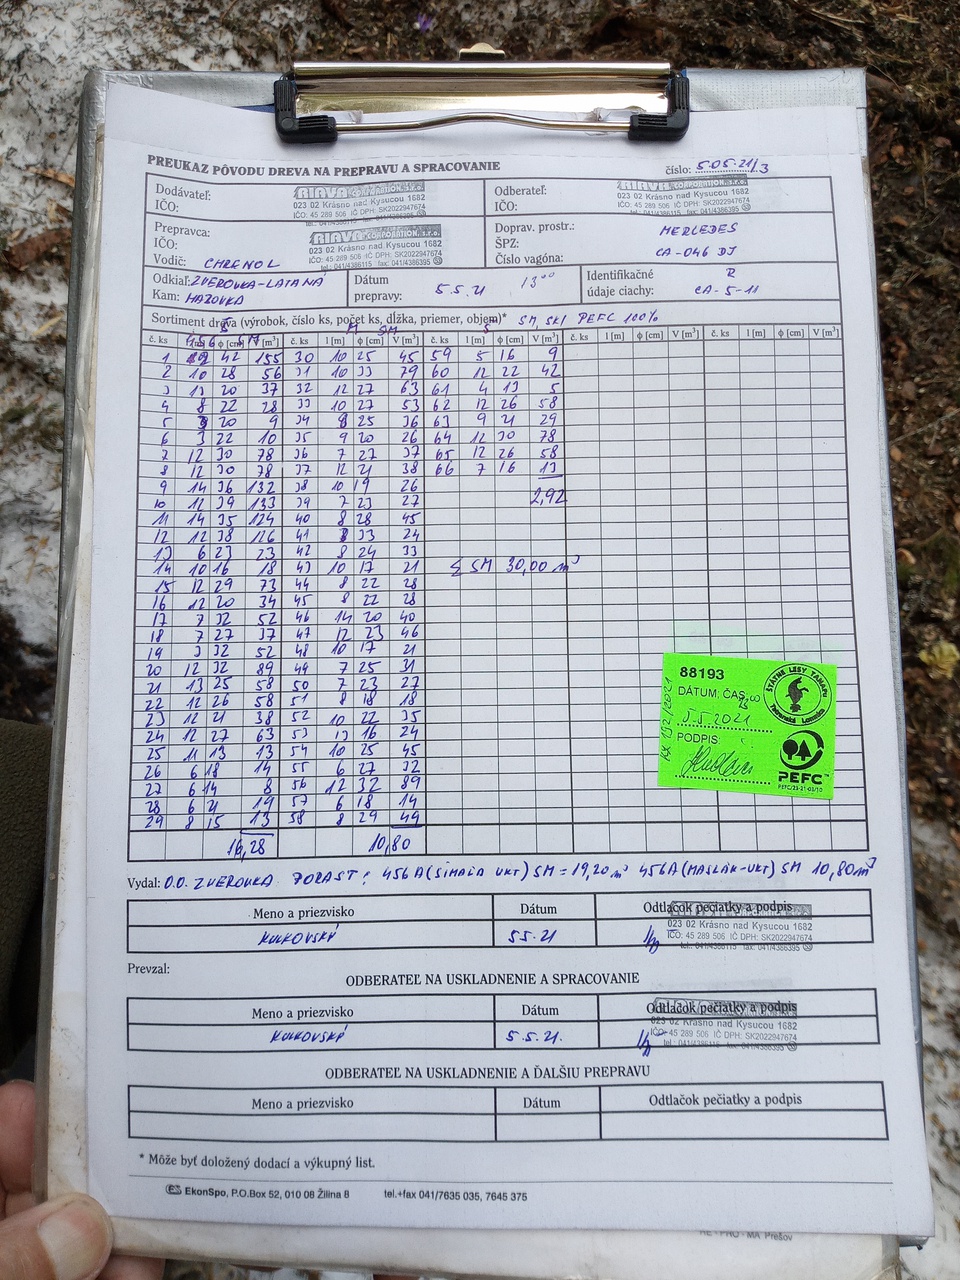 PREUKAZ PÔVODU DREVA NA PREPRAVU A SPRACOVANIE
číslo: 5.05.21/3
Dodávateľ:
IČO:
RIAVA CORPORATION, s.r.o.
023 02 Krásno nad Kysucou 1682
IČO: 45 289 506 IČ DPH: SK2022947674
tel.: 041/4386115
Odberateľ:
IČO:
RIAVA CORPORATION, s.r.o.
023 02 Krásno nad Kysucou 1682
IČO: 45 289 506 IČ DPH: SK2022947674
Prepravca:
IČO:
Vodič: CHRENOL
RIAVA CORPORATION, s.r.o.
023 02 Krásno nad Kysucou 1682
IČO: 45 289 506 IČ DPH: SK2022947674
tel.: 041/4386115 fax: 041/4386395
Doprav. prostr.: MERCEDES
ŠPZ:
Číslo vagóna: CA-046 DJ
Odkiaľ: ZVEROVKA-LATANÁ
Kam: HAZOVKA
Dátum
prepravy: 5.5.21 13°°
Identifikačné R
údaje ciachy: CA-5-11
Sortiment dreva (výrobok, číslo ks, počet ks, dĺžka, priemer, objem)* SM, SKJ PEFC 100%
č. ks ɸ [cm] V [m³] č. ks l [m] ɸ [cm] V [m³] č. ks l [m] ɸ [cm] V [m³] č. ks l [m] ɸ [cm] V [m³] č. ks l [m] ɸ [cm] V [m³]
1 42 155 30 10 25 45 59 5 16 9
2 10 28 56 31 10 33 79 60 12 22 42
3 13 20 37 32 12 27 63 61 4 13 5
4 8 22 28 33 10 27 53 62 12 26 58
5 20 9 34 8 25 36 63 9 21 29
6 3 22 10 35 9 20 26 64 12 30 78
7 12 30 78 36 7 27 37 65 12 26 58
8 12 30 78 37 12 21 38 66 7 16 13
9 14 36 132 38 10 19 26
10 12 39 133 39 7 23 27 2,92
11 14 35 124 40 8 28 45
12 12 38 126 41 33 24
13 6 23 23 42 8 24 33
14 10 16 18 43 10 17 21 Σ SM 30,00 m³
15 12 29 73 44 8 22 28
16 12 20 34 45 8 22 28
17 7 32 52 46 14 20 40
18 7 27 37 47 12 23 46
19 32 52 48 10 17 21
20 12 32 89 49 7 25 31
21 13 25 58 50 7 23 27
22 12 26 58 51 8 18 18
23 12 21 38 52 10 22 35
24 12 27 63 53 13 16 24
25 11 13 13 54 10 25 45
26 6 18 14 55 6 27 32
27 6 14 8 56 12 32 89
28 6 21 19 57 6 18 14
29 8 15 13 58 8 29 49
16,28 10,80
88193
DÁTUM, ČAS
5.5.2021
PODPIS:
ŠTÁTNE LESY TANAPU
Tatranská Lomnica
PEFC™
PEFC/23-21-03/10
Vydal: O.O. ZVEROVKA PORAST: 456A (SIMALA UKT) SM = 19,20 m³ 456A (MASLÁK-UKT) SM 10,80 m³
Meno a priezvisko Dátum Odtlačok pečiatky a podpis
KULKOVSKÝ 5.5.21
023 02 Krásno nad Kysucou 1682
IČO: 45 289 506 IČ DPH: SK2022947674
tel.: 041/4386115 fax: 041/4386395
Prevzal:
ODBERATEĽ NA USKLADNENIE A SPRACOVANIE
Meno a priezvisko Dátum Odtlačok pečiatky a podpis
KULKOVSKÝ 5.5.21.
023 02 Krásno nad Kysucou 1682
IČO: 45 289 506 IČ DPH: SK2022947674
tel.: 041/4386115 fax: 041/4386395
ODBERATEĽ NA USKLADNENIE A ĎALŠIU PREPRAVU
Meno a priezvisko Dátum Odtlačok pečiatky a podpis
* Môže byť doložený dodací a výkupný list.
EkonSpo, P.O.Box 52, 010 08 Žilina 8 tel.+fax 041/7635 035, 7645 375
MA Prešov